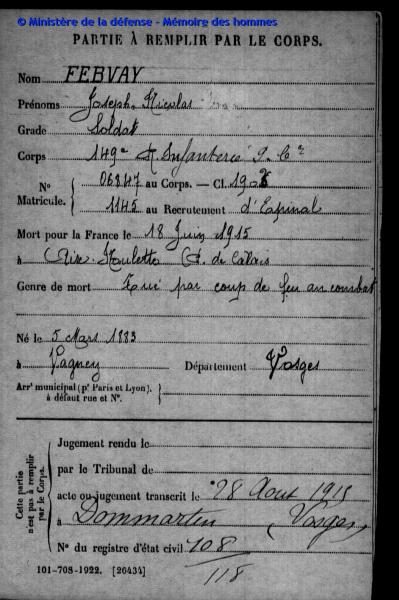 © Ministère de la défense - Mémoire des hommes
PARTIE À REMPLIR PAR LE CORPS.
Nom FEBVAY
Prénoms Joseph Nicolas
Grade Soldat
Corps 149e R. Infanterie
N° 06847 au Corps. — Cl. 1903
Matricule. 1145 au Recrutement d'Epinal
Mort pour la France le 18 Juin 1915
à Aix-Noulette P. de Calais
Genre de mort Tué par coup de feu au combat
Né le 5 Mars 1883
à Vagney Département Vosges
Arrt municipal (pr Paris et Lyon), à défaut rue et N°.
Cette partie n'est pas à remplir par le Corps.
Jugement rendu le
par le Tribunal de
acte ou jugement transcrit le 28 Aout 1915
à Dommartin (Vosges)
N° du registre d'état civil 108
118
101-708-1922. [26434]